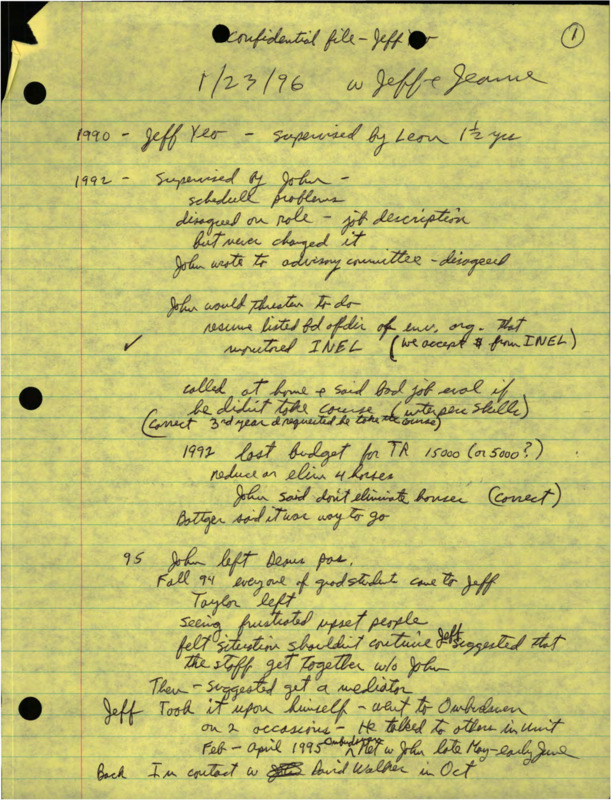 Confidential file - Jeff Yeo
1
1/23/96 w Jeff + Jeanne
1990 - Jeff Yeo - supervised by Leon 1½ yrs
1992 - Supervised by John -
schedule problems
disagreed on role - job description
but never changed it
John wrote to advisory committee - disagreed
John would threaten to do
resume listed bd of dir of env. org. that
✓ monitored INEL (we accept $ from INEL)
called at home + said bad job eval if
he didn't take course (interper skills)
(correct 3rd year + requested he take the course)
1992 lost budget for TR 15000 (or 5000?)
reduce or elim 4 horses
John said don't eliminate horses (correct)
Bottger said it was way to go
95 John left Deans pos.
Fall 94 everyone of grad student came to Jeff
Taylor left
seeing frustrated upset people
felt situation shouldn't continue Jeff suggested that
the staff get together w/o John
Then - suggested get a mediator
Jeff Took it upon himself - went to Ombudsman
on 2 occasions - He talked to others in unit
Feb - April 1995 Ombudsman Met w John late May - early June
Back In contact w David Walker in Oct